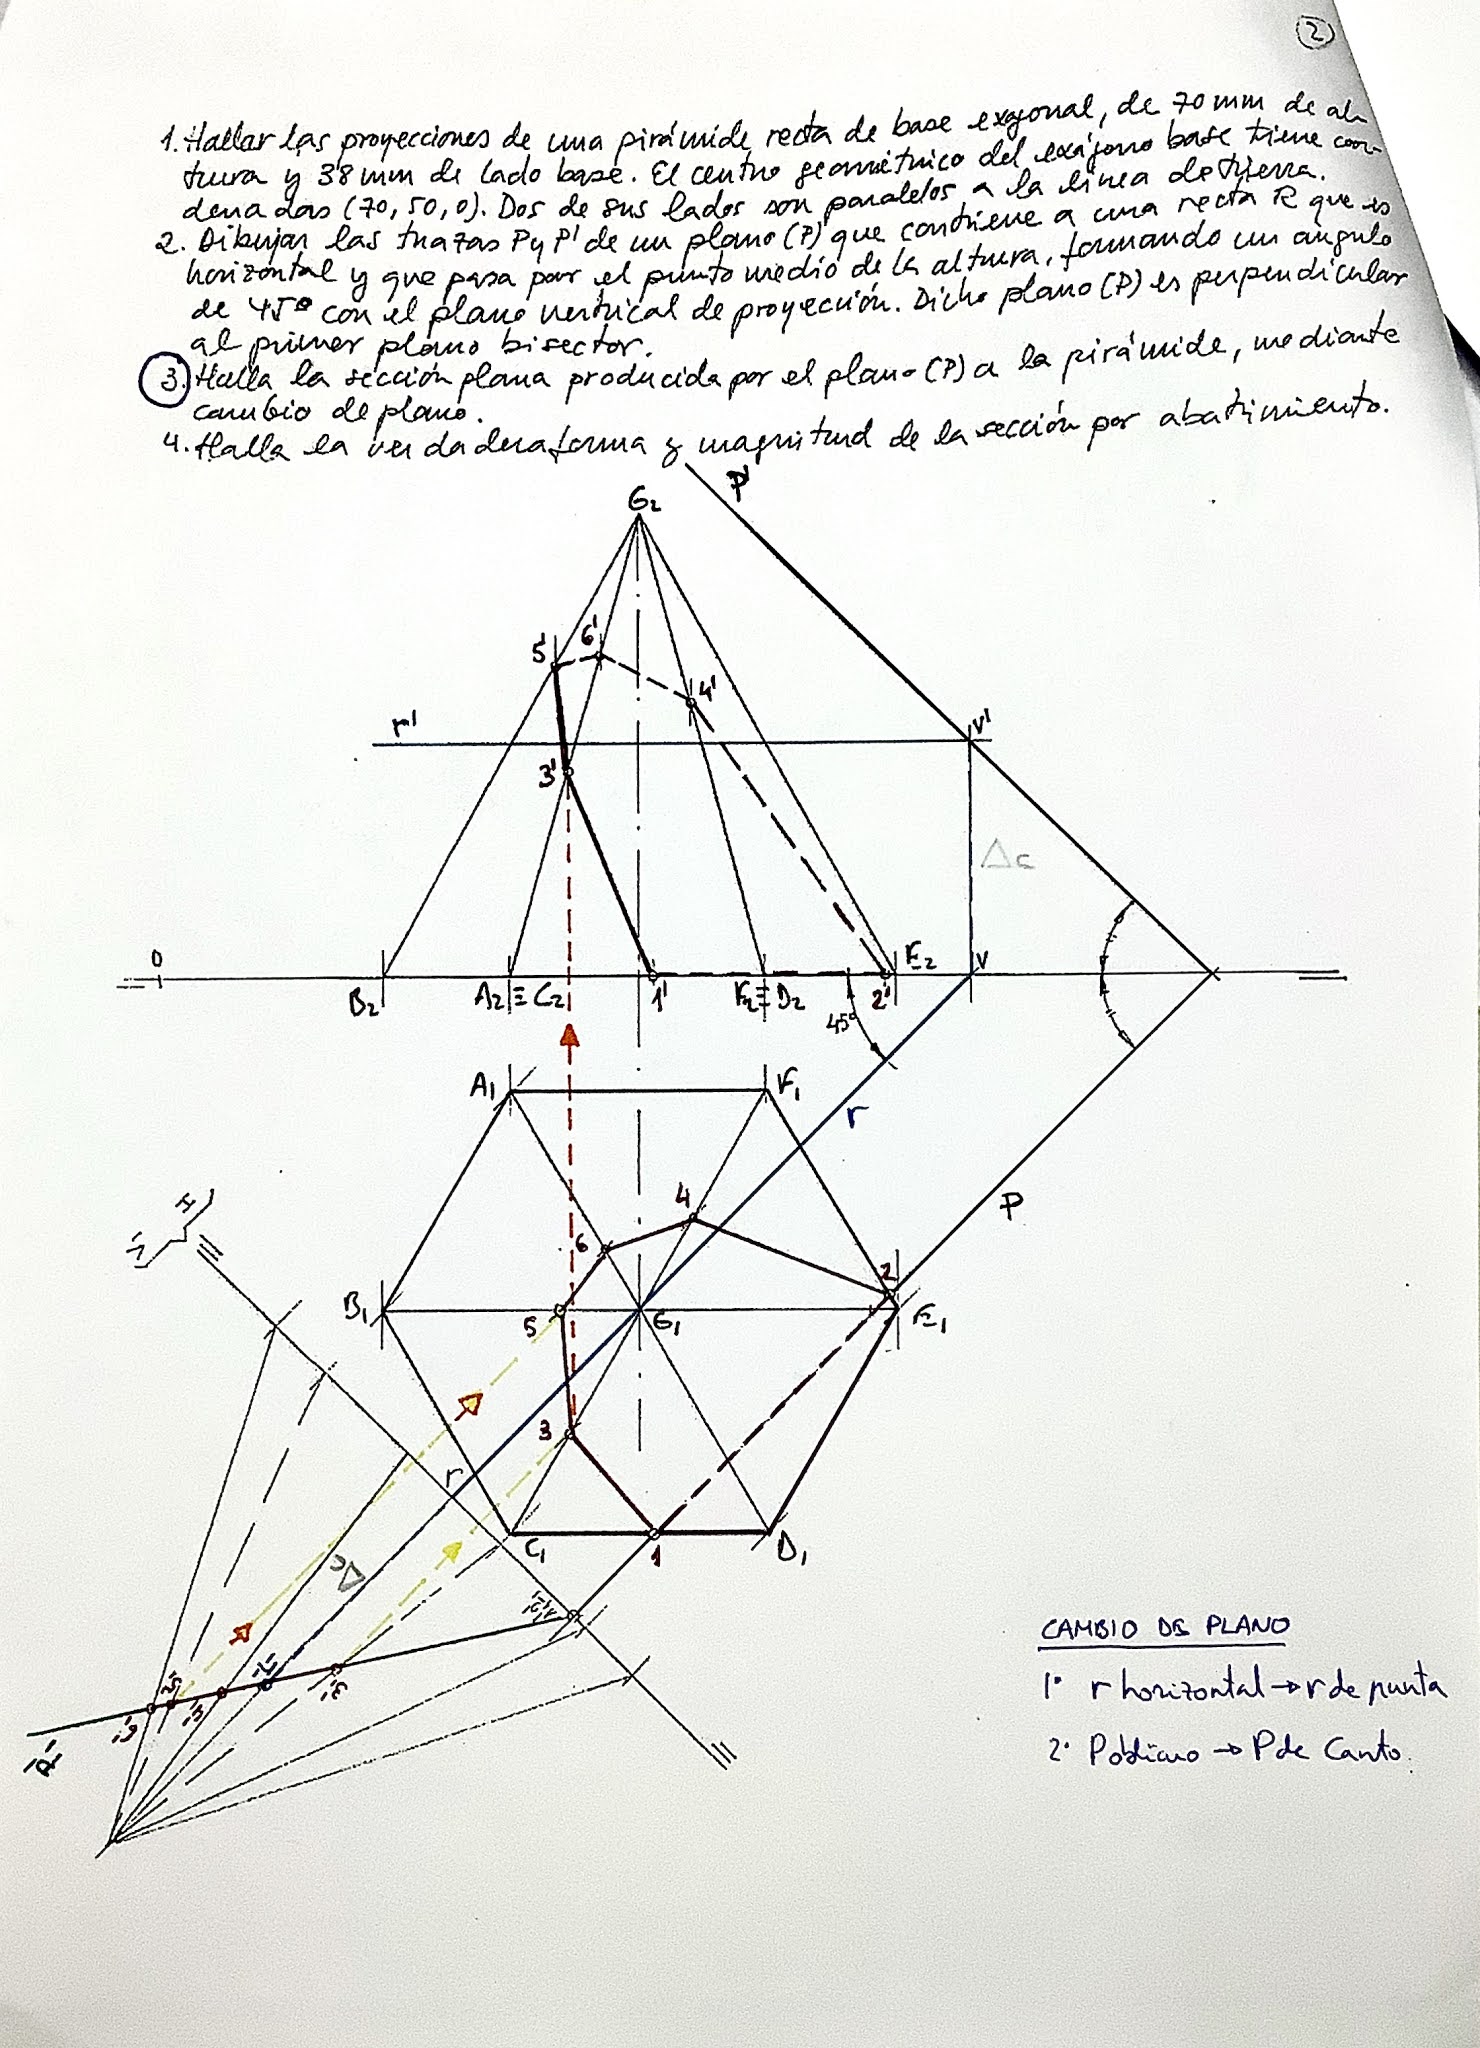 2
1. Hallar las proyecciones de una pirámide recta de base exagonal, de 70 mm de al-
tura y 38 mm de lado base. El centro geométrico del exágono base tiene coor-
denadas (70, 50, 0). Dos de sus lados son paralelos a la línea de tierra.
2. Dibujar las trazas P y P' de un plano (P) que contiene a una recta R que es
horizontal y que pasa por el punto medio de la altura, formando un angulo
de 45º con el plano vertical de proyección. Dicho plano (P) es perpendicular
al primer plano bisector.
3. Halla la sección plana producida por el plano (P) a la pirámide, mediante
cambio de plano.
4. Halla la verdadera forma y magnitud de la sección por abatimiento.
P'
G2
5'
6'
4'
r'
v'
3'
Δc
0
E2
v
B2
A2≡C2
1'
F2≡D2
2'
45º
A1
F1
r
4
P
H
V'
6
2
B1
5
G1
E1
3
r
C1
1
D1
Δc
1'2'
5'
r'
3'
6'
4'
P'
CAMBIO DE PLANO
1º r horizontal → r de punta
2º P oblicuo → P de Canto.